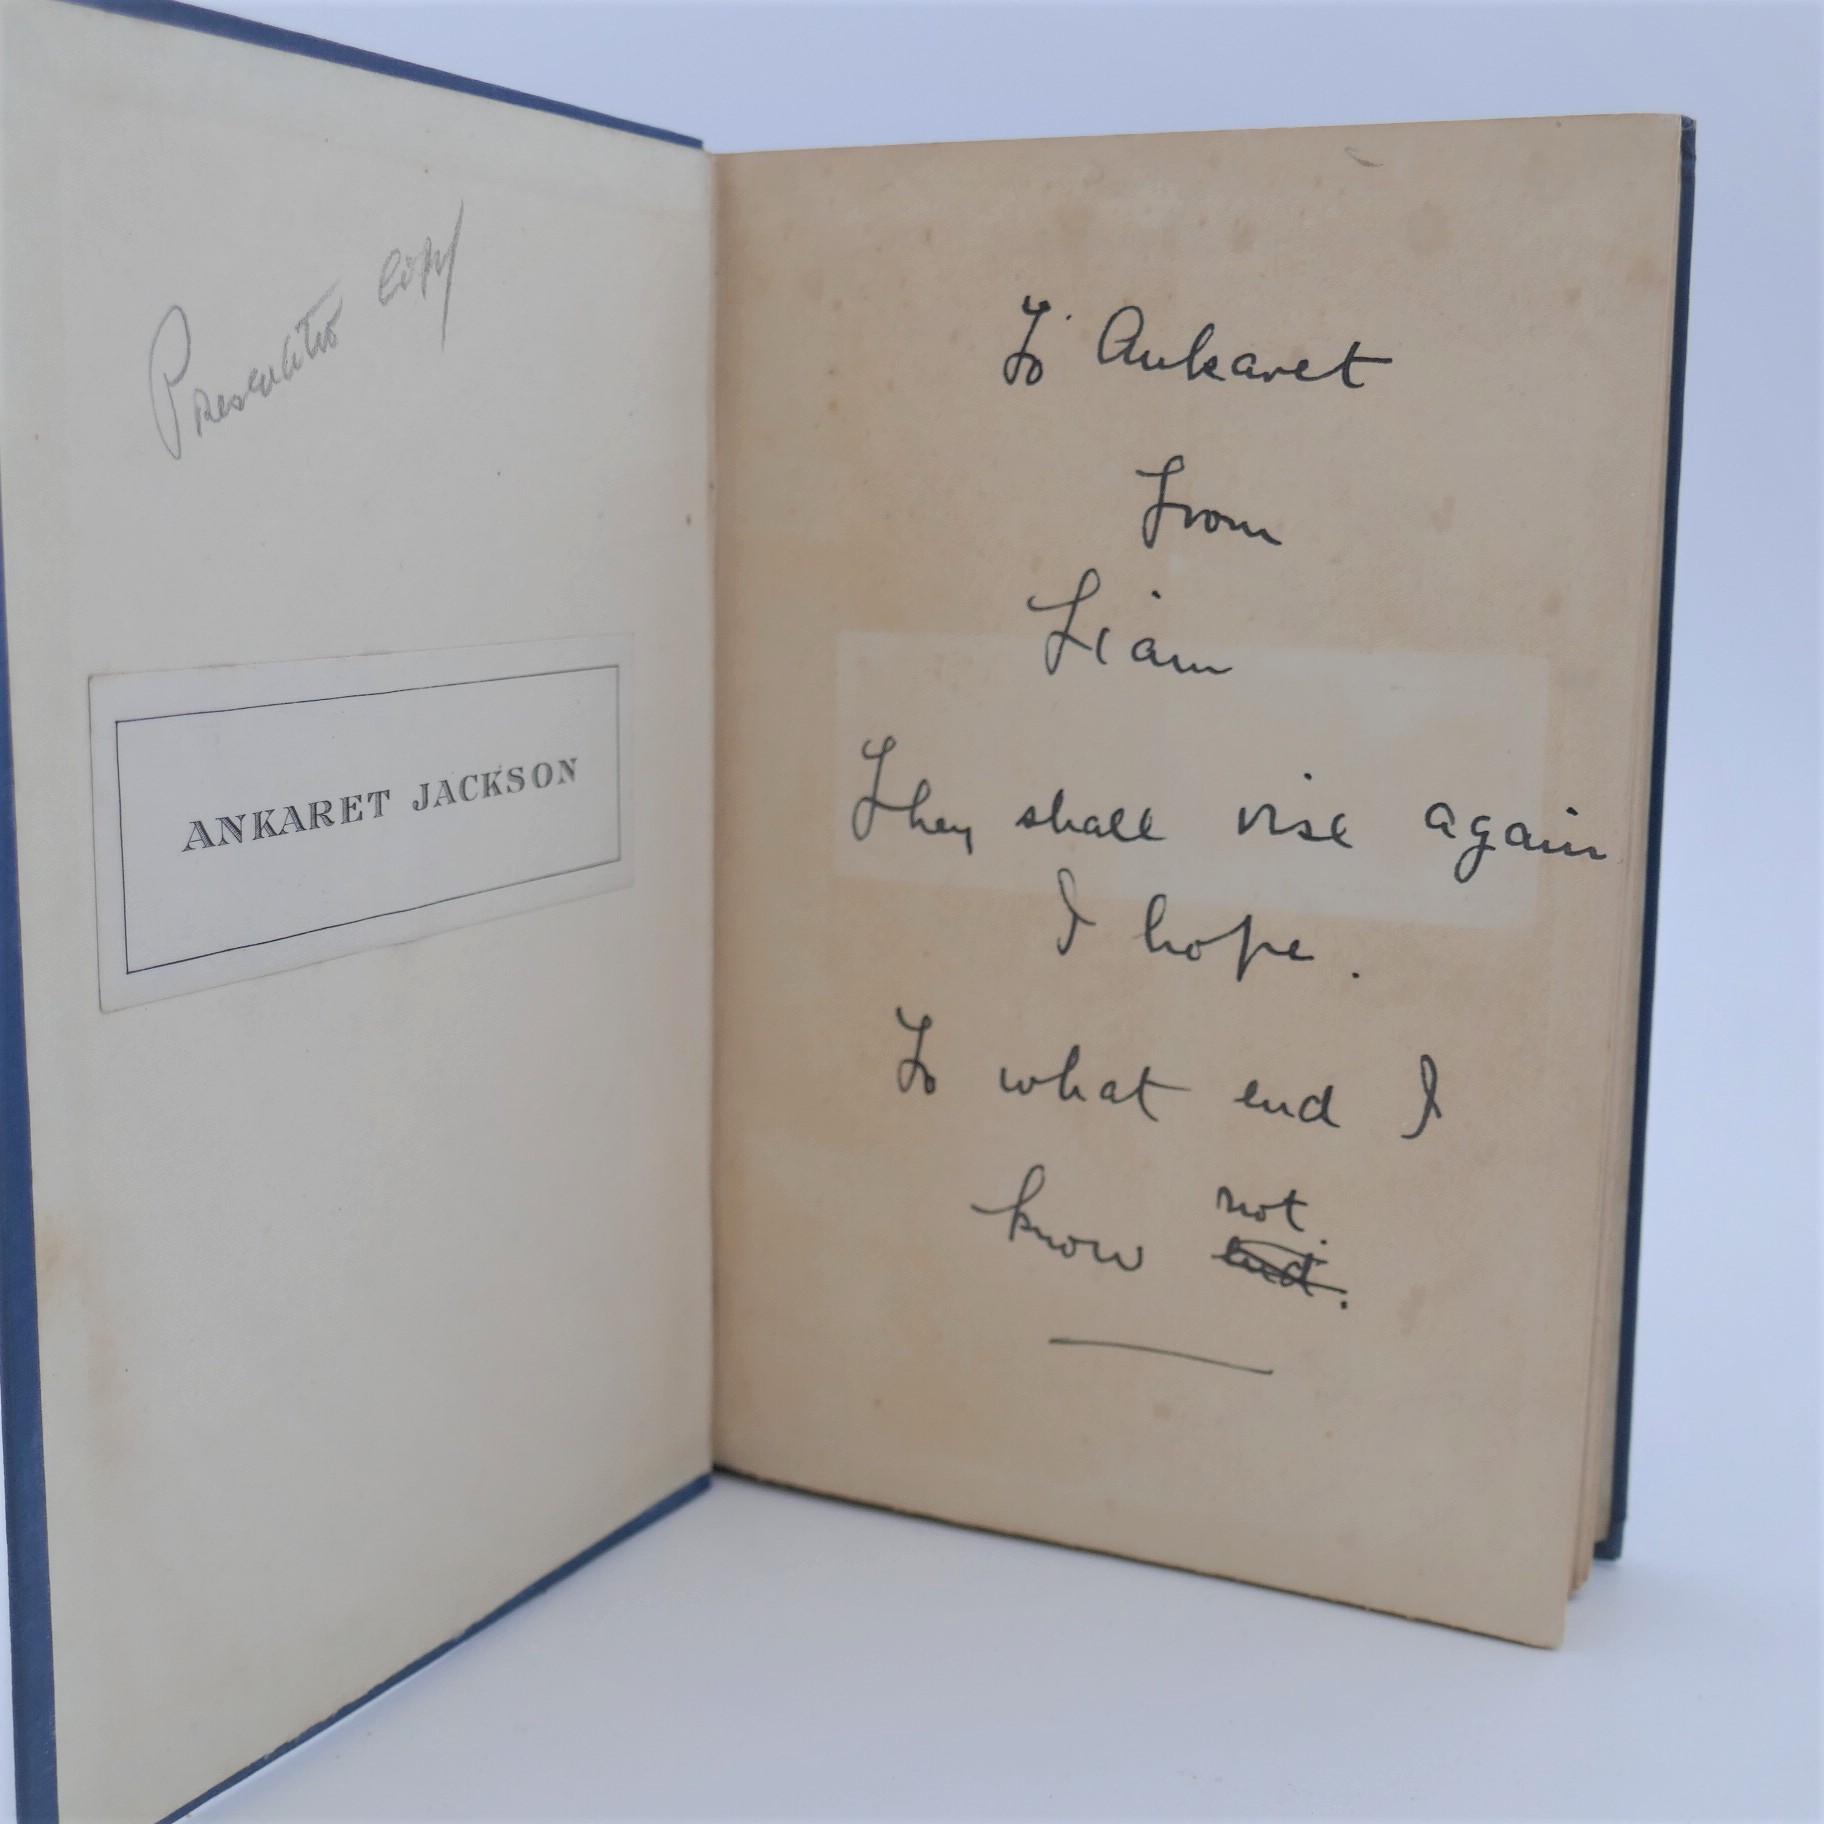 Presentation copy
ANKARET JACKSON
To Ankaret
from
Liam
They shall rise again
I hope.
To what end I
not.
know end.